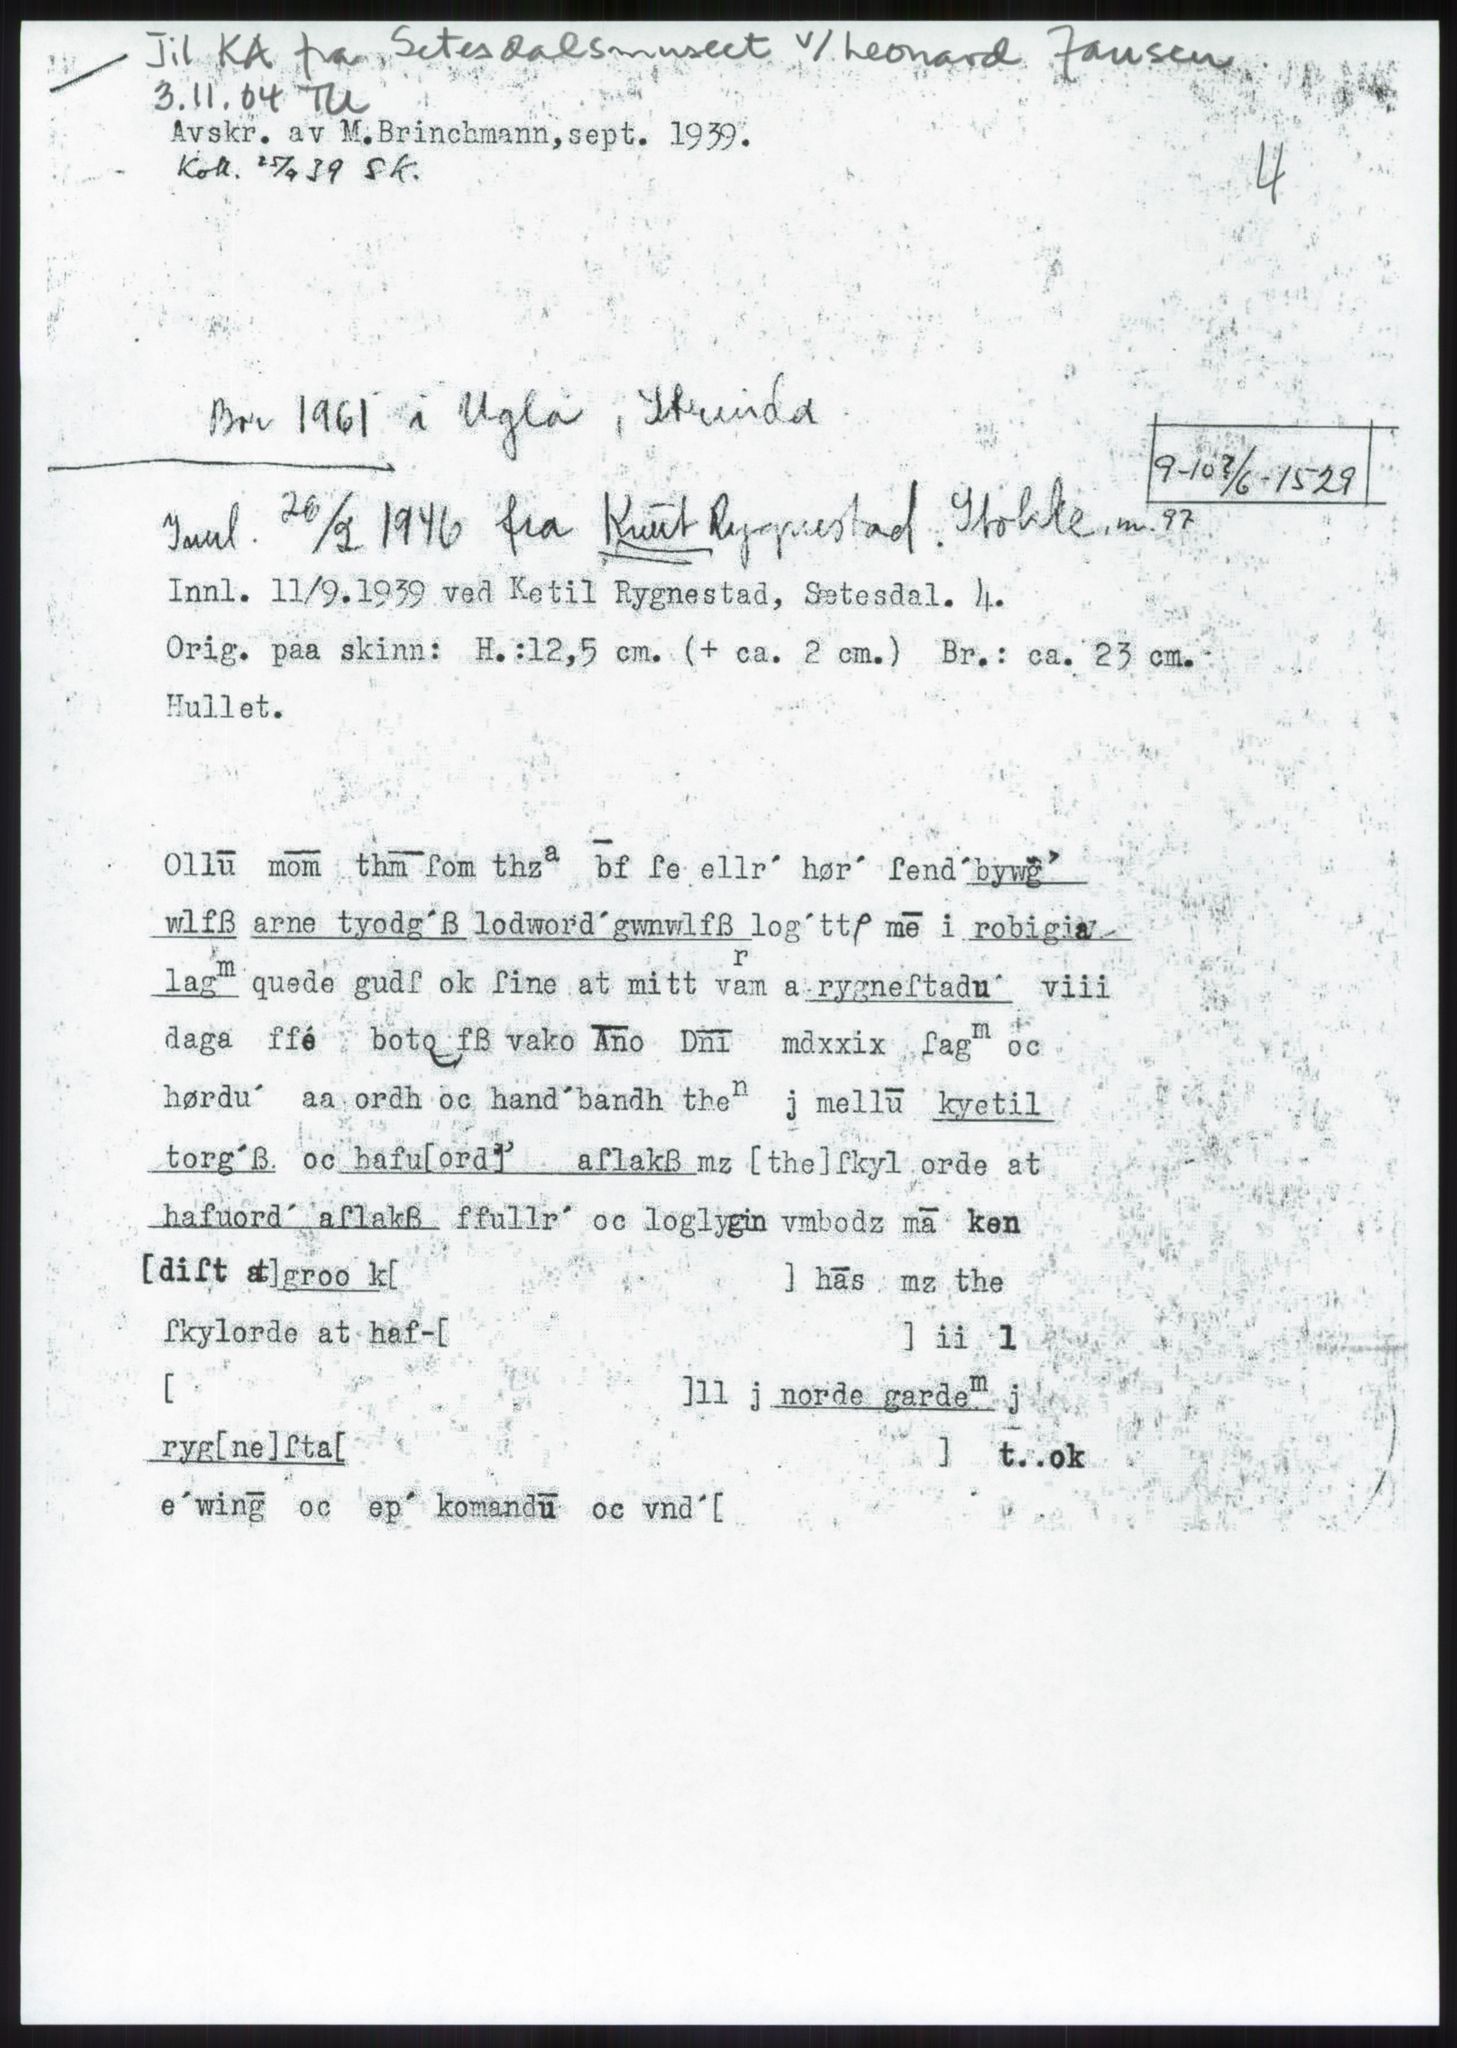 Til KA fra Setesdalsmuseet v/ Leonard Jansen
3.11.04 TU
Avskr. av M.Brinchmann,sept. 1939.
Koll. 25/9 39 SK.
4
Bor 1961 i Ugla, Strinda
9-10?/6-1529
Innl. 26/2 1946 fra Knut Rygnestad. m. 97
Innl. 11/9.1939 ved Ketil Rygnestad, Setesdal. 4.
Orig. paa skinn: H.:12,5 cm. (+ ca. 2 cm.) Br.: ca. 23 cm.
Hullet.
Ollū mōm̄ thm̄ ſom thzᵃ b̄f ſe ellr´ hør´ ſend´bywḡ’
wlfß arne tyodg´ß lodword´gwnwlfß log´ttꝭ mē i robigia
lagᵐ quede gudſ ok ſine at mitt vaʳm a rygneſtadu´ viii
daga ffé boto fß vako Ān̄o Dn̄ī mdxxix ſagᵐ oc
hørdu´ aa ordh oc hand´bandh theⁿ j mellū kyetil
torg´ß oc hafu[ord]’ aſlakß mz [the]ſkyl orde at
hafuord´ aſlakß ffullr´ oc loglygin vmbodz mā ken
[diſt at]groo k[ ] hās mz the
ſkylorde at haf-[ ] ii l
[ ]ll j norde gardeᵐ j
ryg[ne]ſta[ ] t..ok
e´winḡ oc ep´ komandū oc vnd´[